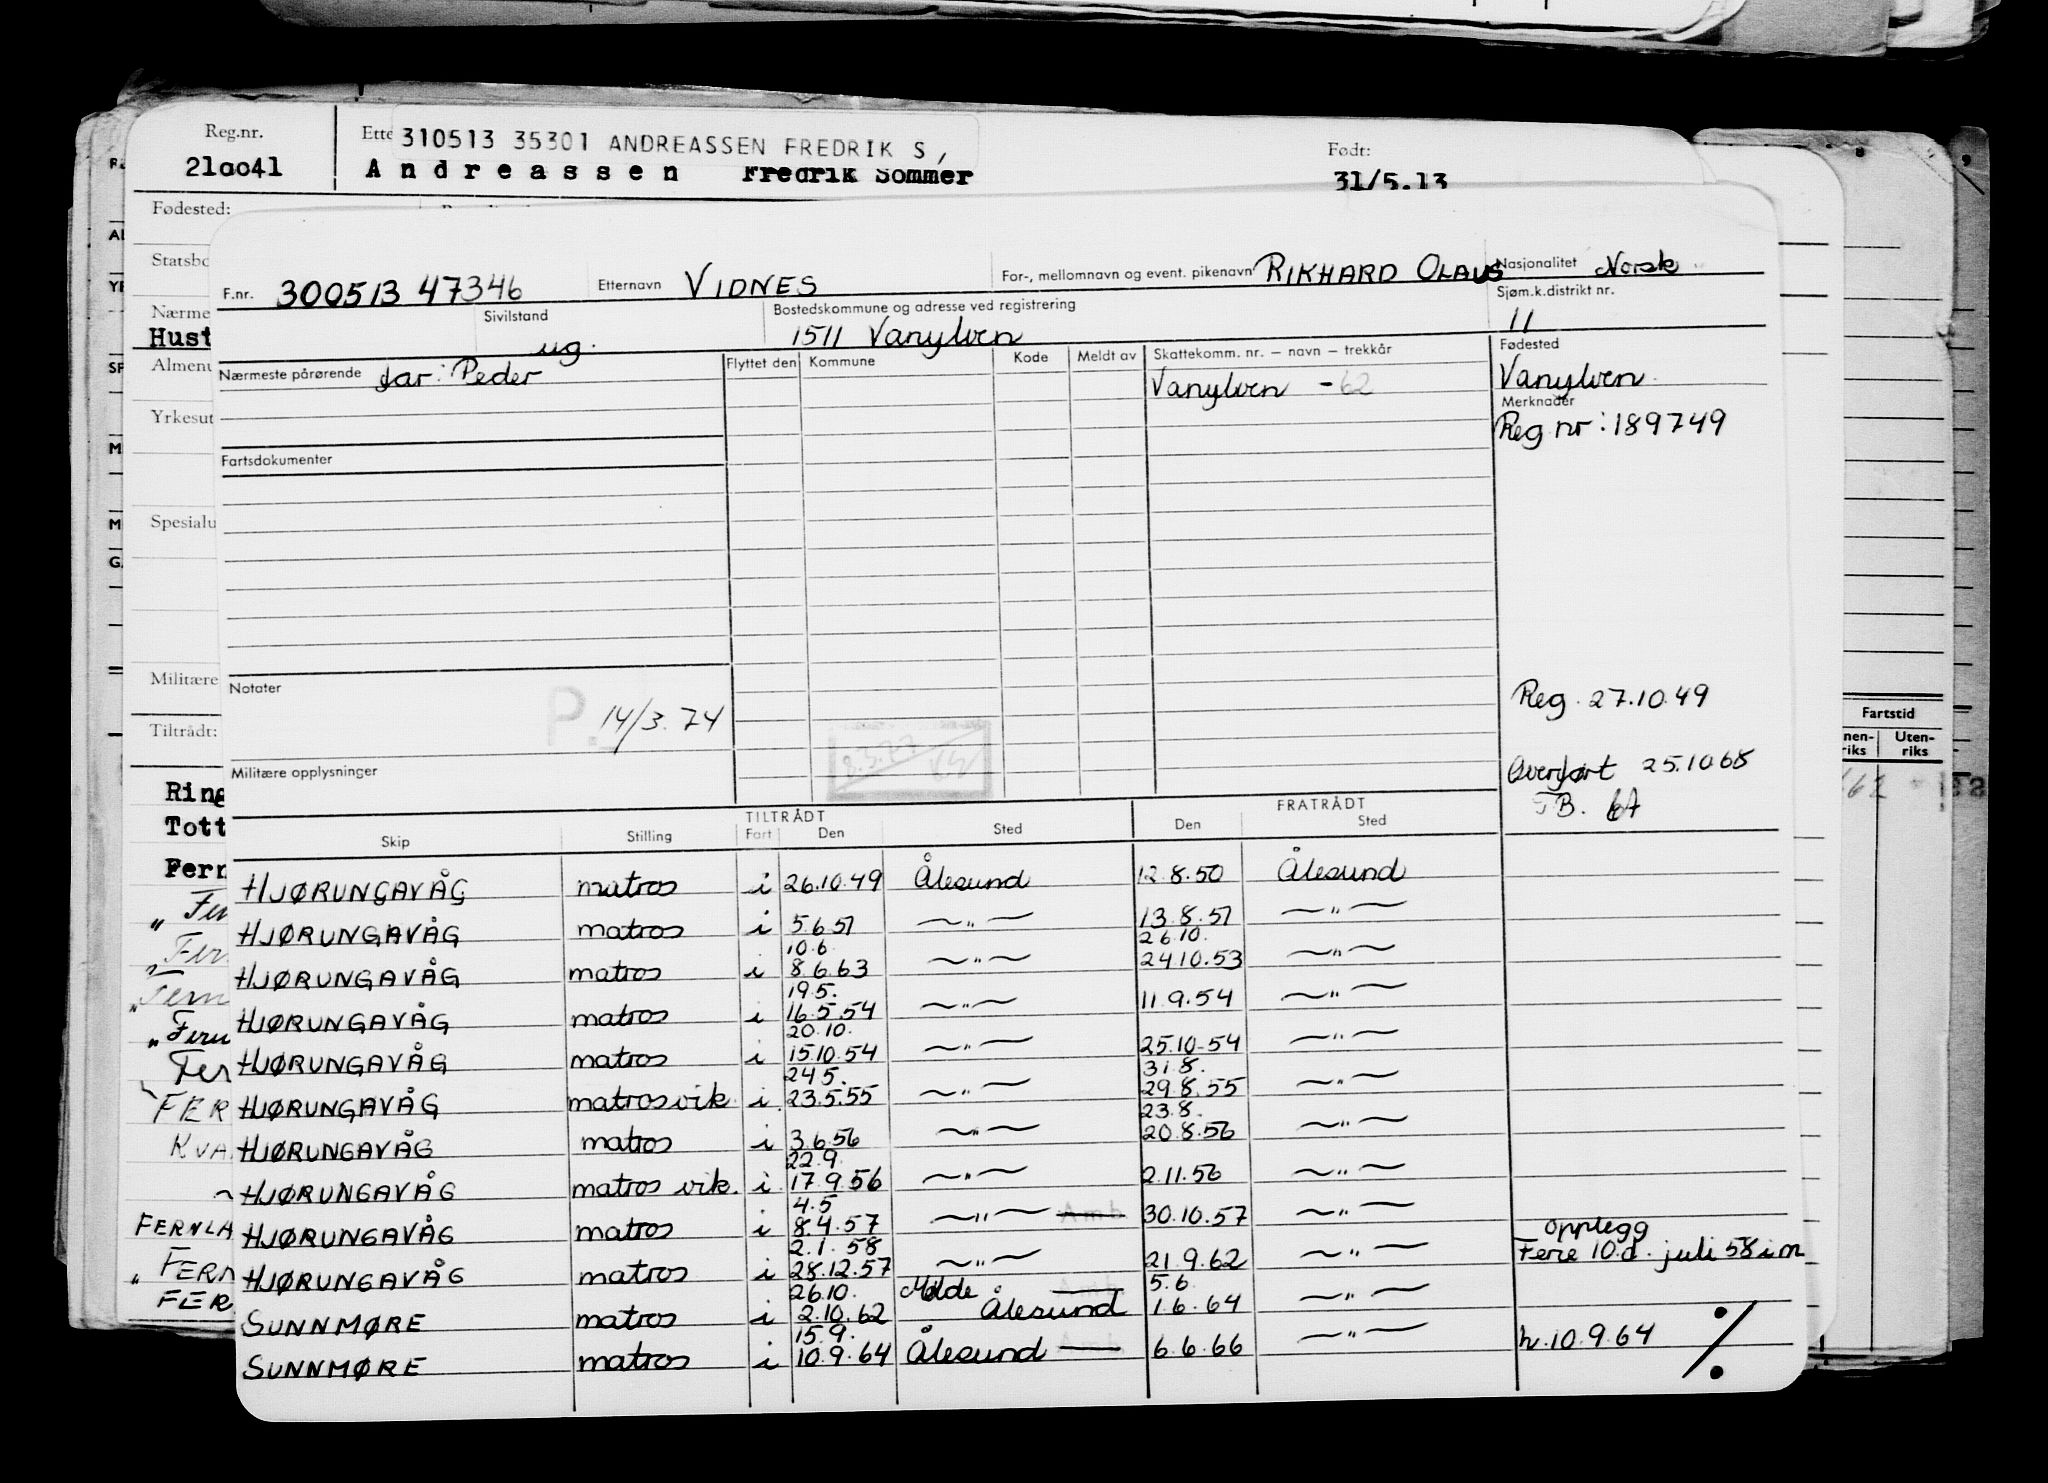 Reg.nr.
21oo41
Ette 310513 35301 ANDREASSEN FREDRIK S,
Andreassen Fredrik Sommer
Født:
31/5.13
Fødested:
Statsbo
Nærme
Hust
Almenu
Yrkesut
Spesialu
Militære
Tiltrådt:
Ring
Tott
Fern
F.nr. 300513 47346 Etternavn VIDNES For-, mellomnavn og event. pikenavn RIKHARD OLAUS Nasjonalitet Norsk
Sivilstand ug. Bostedskommune og adresse ved registrering 1511 Vanylven Sjøm.k.distrikt nr. 11
Nærmeste pårørende far: Peder Flyttet den Kommune Kode Meldt av Skattekomm. nr. – navn – trekkår Fødested
Vanylven - 62 Vanylven
Merknader
Reg nr: 189749
Fartsdokumenter
Notater
P. 14/3.74
Reg. 27.10.49
Militære opplysninger
Overført 25.10 65
Fartstid
Uten-
riks
TILTRÅDT FRATRÅDT
Skip Stilling Fart Den Sted Den Sted
HJØRUNGAVÅG matros i 26.10.49 Ålesund 12.8.50 Ålesund
HJØRUNGAVÅG matros i 5.6.51 —"— 13.8.51 —"—
10.6 26.10.
HJØRUNGAVÅG matros i 8.6.63 —"— 24.10.53 —"—
19.5.
HJØRUNGAVÅG matros i 16.5.54 —"— 11.9.54 —"—
20.10.
HJØRUNGAVÅG matros i 15.10.54 —"— 25.10.54 —"—
24.5. 31.8.
HJØRUNGAVÅG matros vik. i 23.5.55 —"— 29.8.55 —"—
23.8.
HJØRUNGAVÅG matros i 3.6.56 —"— 20.8.56 —"—
22.9.
HJØRUNGAVÅG matros vik. i 17.9.56 —"— 2.11.56 —"—
4.5
HJØRUNGAVÅG matros i 8.4.57 —"— Amb 30.10.57 —"— opplegg
2.1.58
HJØRUNGAVÅG matros i 28.12.57 —"— 21.9.62 —"— Ferie 10.d. juli 58 i m
26.10. Molde 5.6.
SUNNMØRE matros i 2.10.62 Ålesund 1.6.64 —"—
15.9.
SUNNMØRE matros i 10.9.64 Ålesund 6.6.66 —"— h. 10.9.64